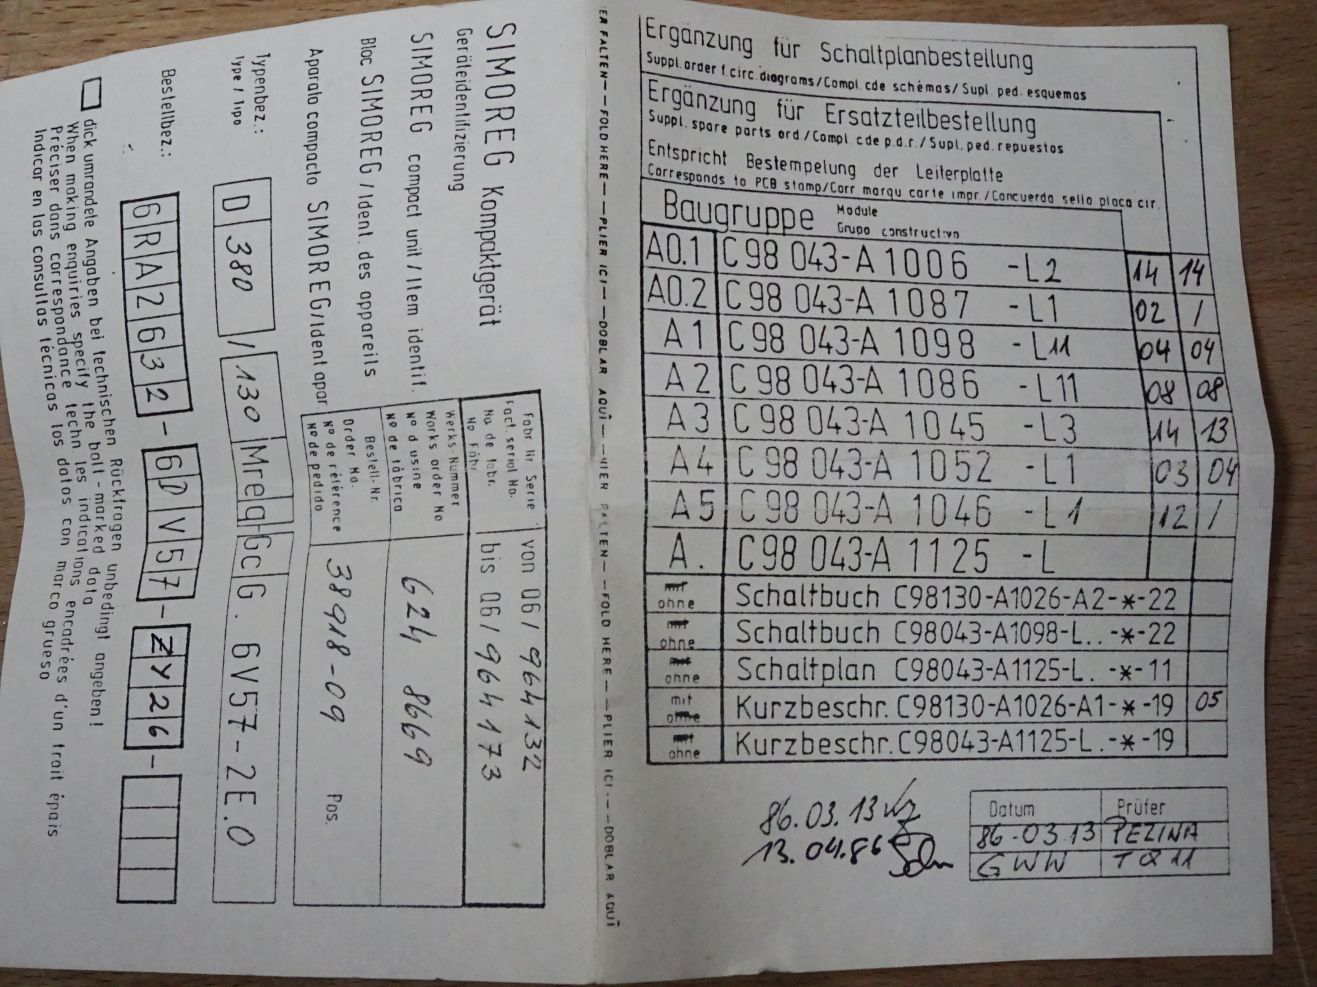 SIMOREG Kompaktgerät
Geräteidentifizierung
SIMOREG compact unit / Item identif.
Bloc SIMOREG / Ident. des appareils
Aparato compacto SIMOREG/Ident apar.
Fabr. Nr Serie
Fact. serial No.
No de fabr.
No Fabr.
von 06/ 964132
bis 06/ 964173
Werks-Nummer
Works order No
Nº d usine
Nº de fábrica
624 8669
Bestell-Nr.
Order No.
Nº de référence
Nº de pedido
38918-09 Pos.
Typenbez.:
Type / Tipo
D 380 / 130 Mreq GcG. 6V57-2E.0
Bestellbez.:
6RA2632-6DV57-ZY26-
dick umrandete Angaben bei technischen Rückfragen unbedingt angeben!
When making enquiries specify the bolt-marked data
Préciser dans correspondance techn les indications encadrées d'un trait épais
Indicar en las consultas técnicas los datos con marco grueso
ER FALTEN——FOLD HERE——PLIER ICI——DOBLAR AQUÎ——HIER FALTEN——FOLD HERE——PLIER ICI——DOBLAR AQUÎ
Ergänzung für Schaltplanbestellung
Suppl. order f. circ. diagrams/Compl. cde schémas/Supl. ped. esquemas
Ergänzung für Ersatzteilbestellung
Suppl. spare parts ord /Compl. cde p.d.r./Supl. ped. repuestos
Entspricht Bestempelung der Leiterplatte
Corresponds to PCB stamp/Corr marqu carte impr./Concuerda sello placa cir.
Baugruppe Module
Grupo constructivn
A0.1 C98 043-A 1006 -L2 14 14
A0.2 C98 043-A 1087 -L1 02 /
A 1 C98 043-A 1098 -L11 04 04
A 2 C98 043-A 1086 -L11 08 08
A 3 C98 043-A 1045 -L3 14 13
A 4 C98 043-A 1052 -L1 03 04
A 5 C98 043-A 1046 -L1 12 /
A . C98 043-A 1125 -L
mit ohne Schaltbuch C98130-A1026-A2-*-22
mit ohne Schaltbuch C98043-A1098-L..-*-22
mit ohne Schaltplan C98043-A1125-L. -*-11
mit ohne Kurzbeschr. C98130-A1026-A1-*-19 05
mit ohne Kurzbeschr. C98043-A1125-L.-*-19
86.03.13
13.04.86
Datum Prüfer
86-03.13 PEZINA
GWW TQ11